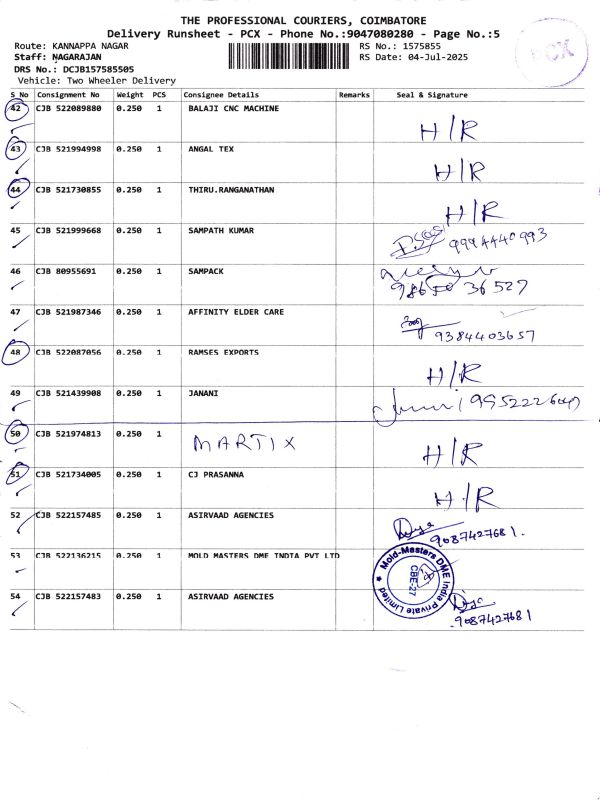 THE PROFESSIONAL COURIERS, COIMBATORE
Delivery Runsheet - PCX - Phone No.:9047080280 - Page No.:5
Route: KANNAPPA NAGAR
RS No.: 1575855
Staff: NAGARAJAN
RS Date: 04-Jul-2025
DRS No.: DCJB157585505
Vehicle: Two Wheeler Delivery
PCX
S_No Consignment No Weight PCS Consignee Details Remarks Seal & Signature
42 CJB 522089880 0.250 1 BALAJI CNC MACHINE
H/R
43 CJB 521994998 0.250 1 ANGAL TEX
H/R
44 CJB 521730855 0.250 1 THIRU.RANGANATHAN
H/R
45 CJB 521999668 0.250 1 SAMPATH KUMAR
9994440993
46 CJB 80955691 0.250 1 SAMPACK
98650 36527
47 CJB 521987346 0.250 1 AFFINITY ELDER CARE
9384403657
48 CJB 522087056 0.250 1 RAMSES EXPORTS
H/R
49 CJB 521439908 0.250 1 JANANI
50 CJB 521974813 0.250 1 MARTIX
H/R
51 CJB 521734005 0.250 1 CJ PRASANNA
H/R
52 CJB 522157485 0.250 1 ASIRVAAD AGENCIES
9087427681.
53 CJB 522136215 0.250 1 MOLD MASTERS DME INDIA PVT LTD
Mold-Masters DME India Private Limited
CBE-27
54 CJB 522157483 0.250 1 ASIRVAAD AGENCIES
9087427681